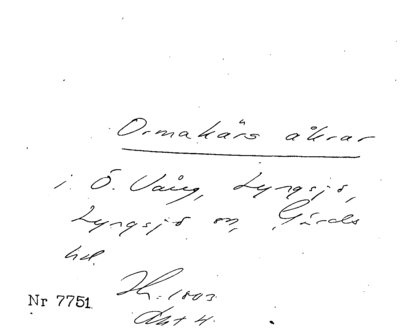 Ormakärs åkrar
i Ö. Vång, Lyngsjö,
Lyngsjö sn, Gärds
hd.
Nr 7751
1803
Akt 4.